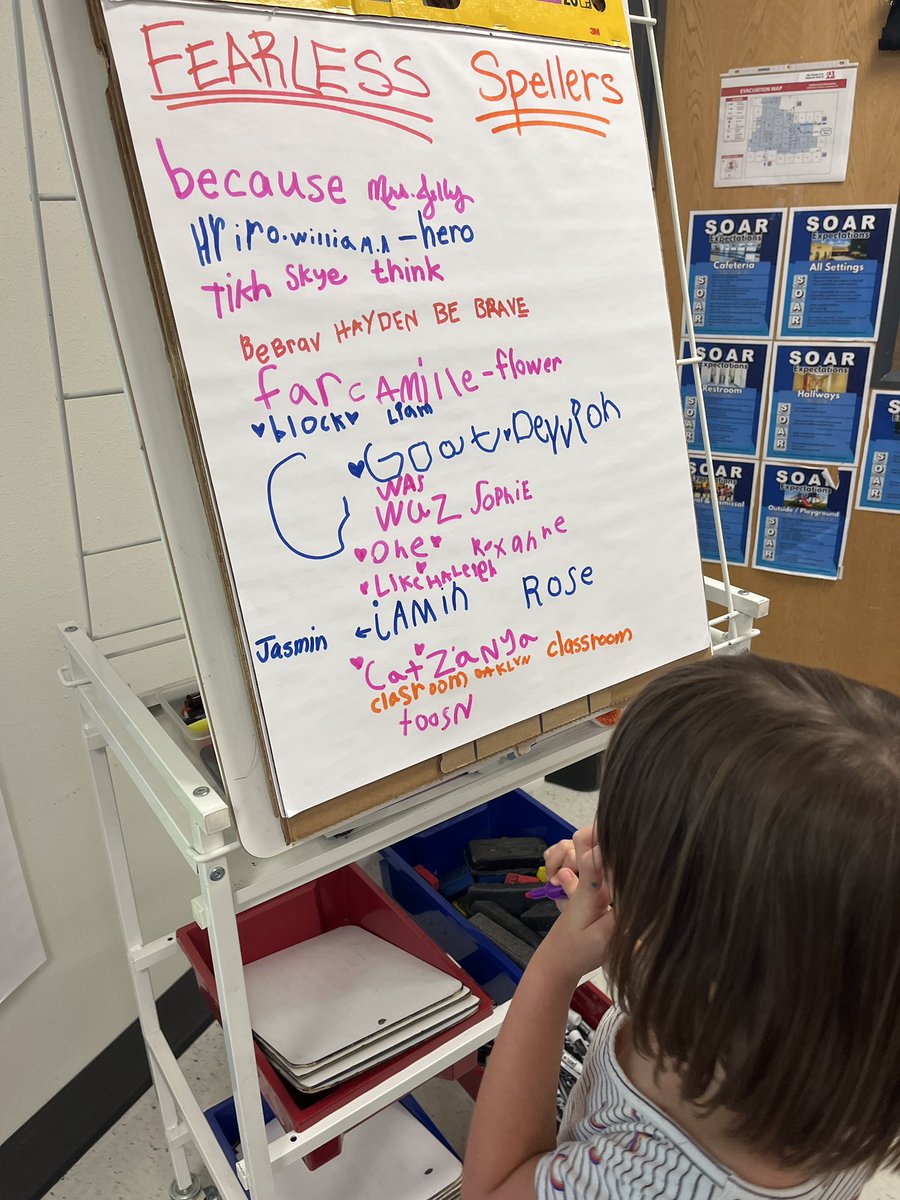 FEARLESS Spellers
because Mrs. Jelly
Hriro. William.A - hero
Tikh Skye think
BeBrav HAYDEN BE BRAVE
far cAmille - flower
block Liam
Goat
WAS
WUZ SOPHIE
one Roxanne
LIKE HALEIGH
iAMin ROSE
Jasmin
Cat ZANYA
clasroom OAKLYN classroom
toosN
3M
EVACUATION MAP
SOAR
Expectations
Cafeteria
SOAR
SOAR
Expectations
All Settings
SOAR
SOAR
Expectations
Restroom
SOAR
SOAR
Expectations
Hallways
SOAR
SOAR
Expectations
SOAR
Expectations
Outside / Playground
SOAR
SOAR